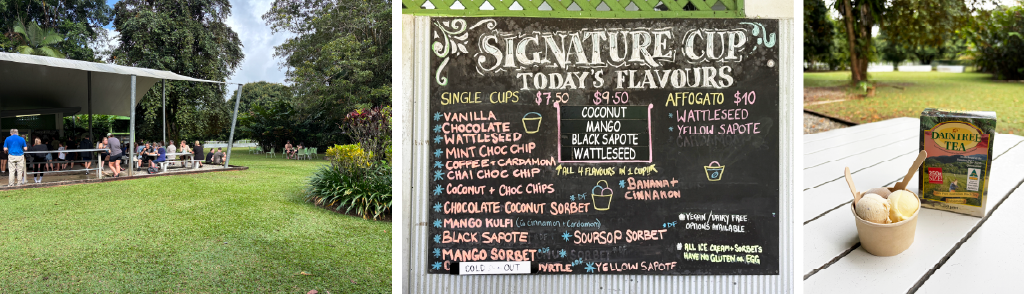 SIGNATURE CUP
TODAY'S FLAVOURS
SINGLE CUPS $7.50 $9.50
* VANILLA
* CHOCOLATE
* WATTLESEED
* MINT CHOC CHIP
* COFFEE + CARDAMOM
* CHAI CHOC CHIP
* COCONUT + CHOC CHIPS
* CHOCOLATE COCONUT SORBET *DF
* MANGO KULFI (G cinnamon + Cardamom)
* BLACK SAPOTE
* SOURSOP SORBET *DF
* MANGO SORBET *DF
SOLD OUT
MYRTLE *DF
* YELLOW SAPOTE
COCONUT
MANGO
BLACK SAPOTE
WATTLESEED
ALL 4 FLAVOURS IN 1 CUP!
* BANANA +
CINNAMON
AFFOGATO $10
* WATTLESEED
* YELLOW SAPOTE
* VEGAN/DAIRY FREE
OPTIONS AVAILABLE
* ALL ICE CREAM + SORBETS
HAVE NO GLUTEN OR EGG
DAINTREE
TEA